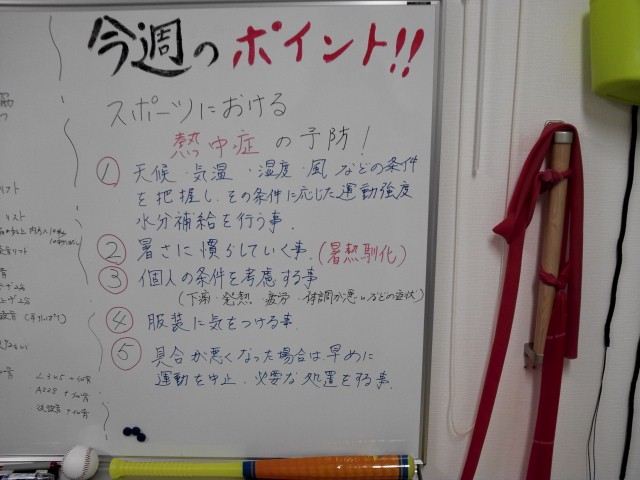 今週のポイント!!
スポーツにおける
熱中症の予防!
① 天候・気温・湿度・風などの条件
を把握し、その条件に応じた運動強度
水分補給を行う事.
② 暑さに慣らしていく事.(暑熱馴化)
③ 個人の条件を考慮する事
(下痢・発熱・疲労・体調が悪いなどの症状)
④ 服装に気をつける事.
⑤ 具合が悪くなった場合は早めに
運動を中止、必要な処置をする事.
リフト
リフト